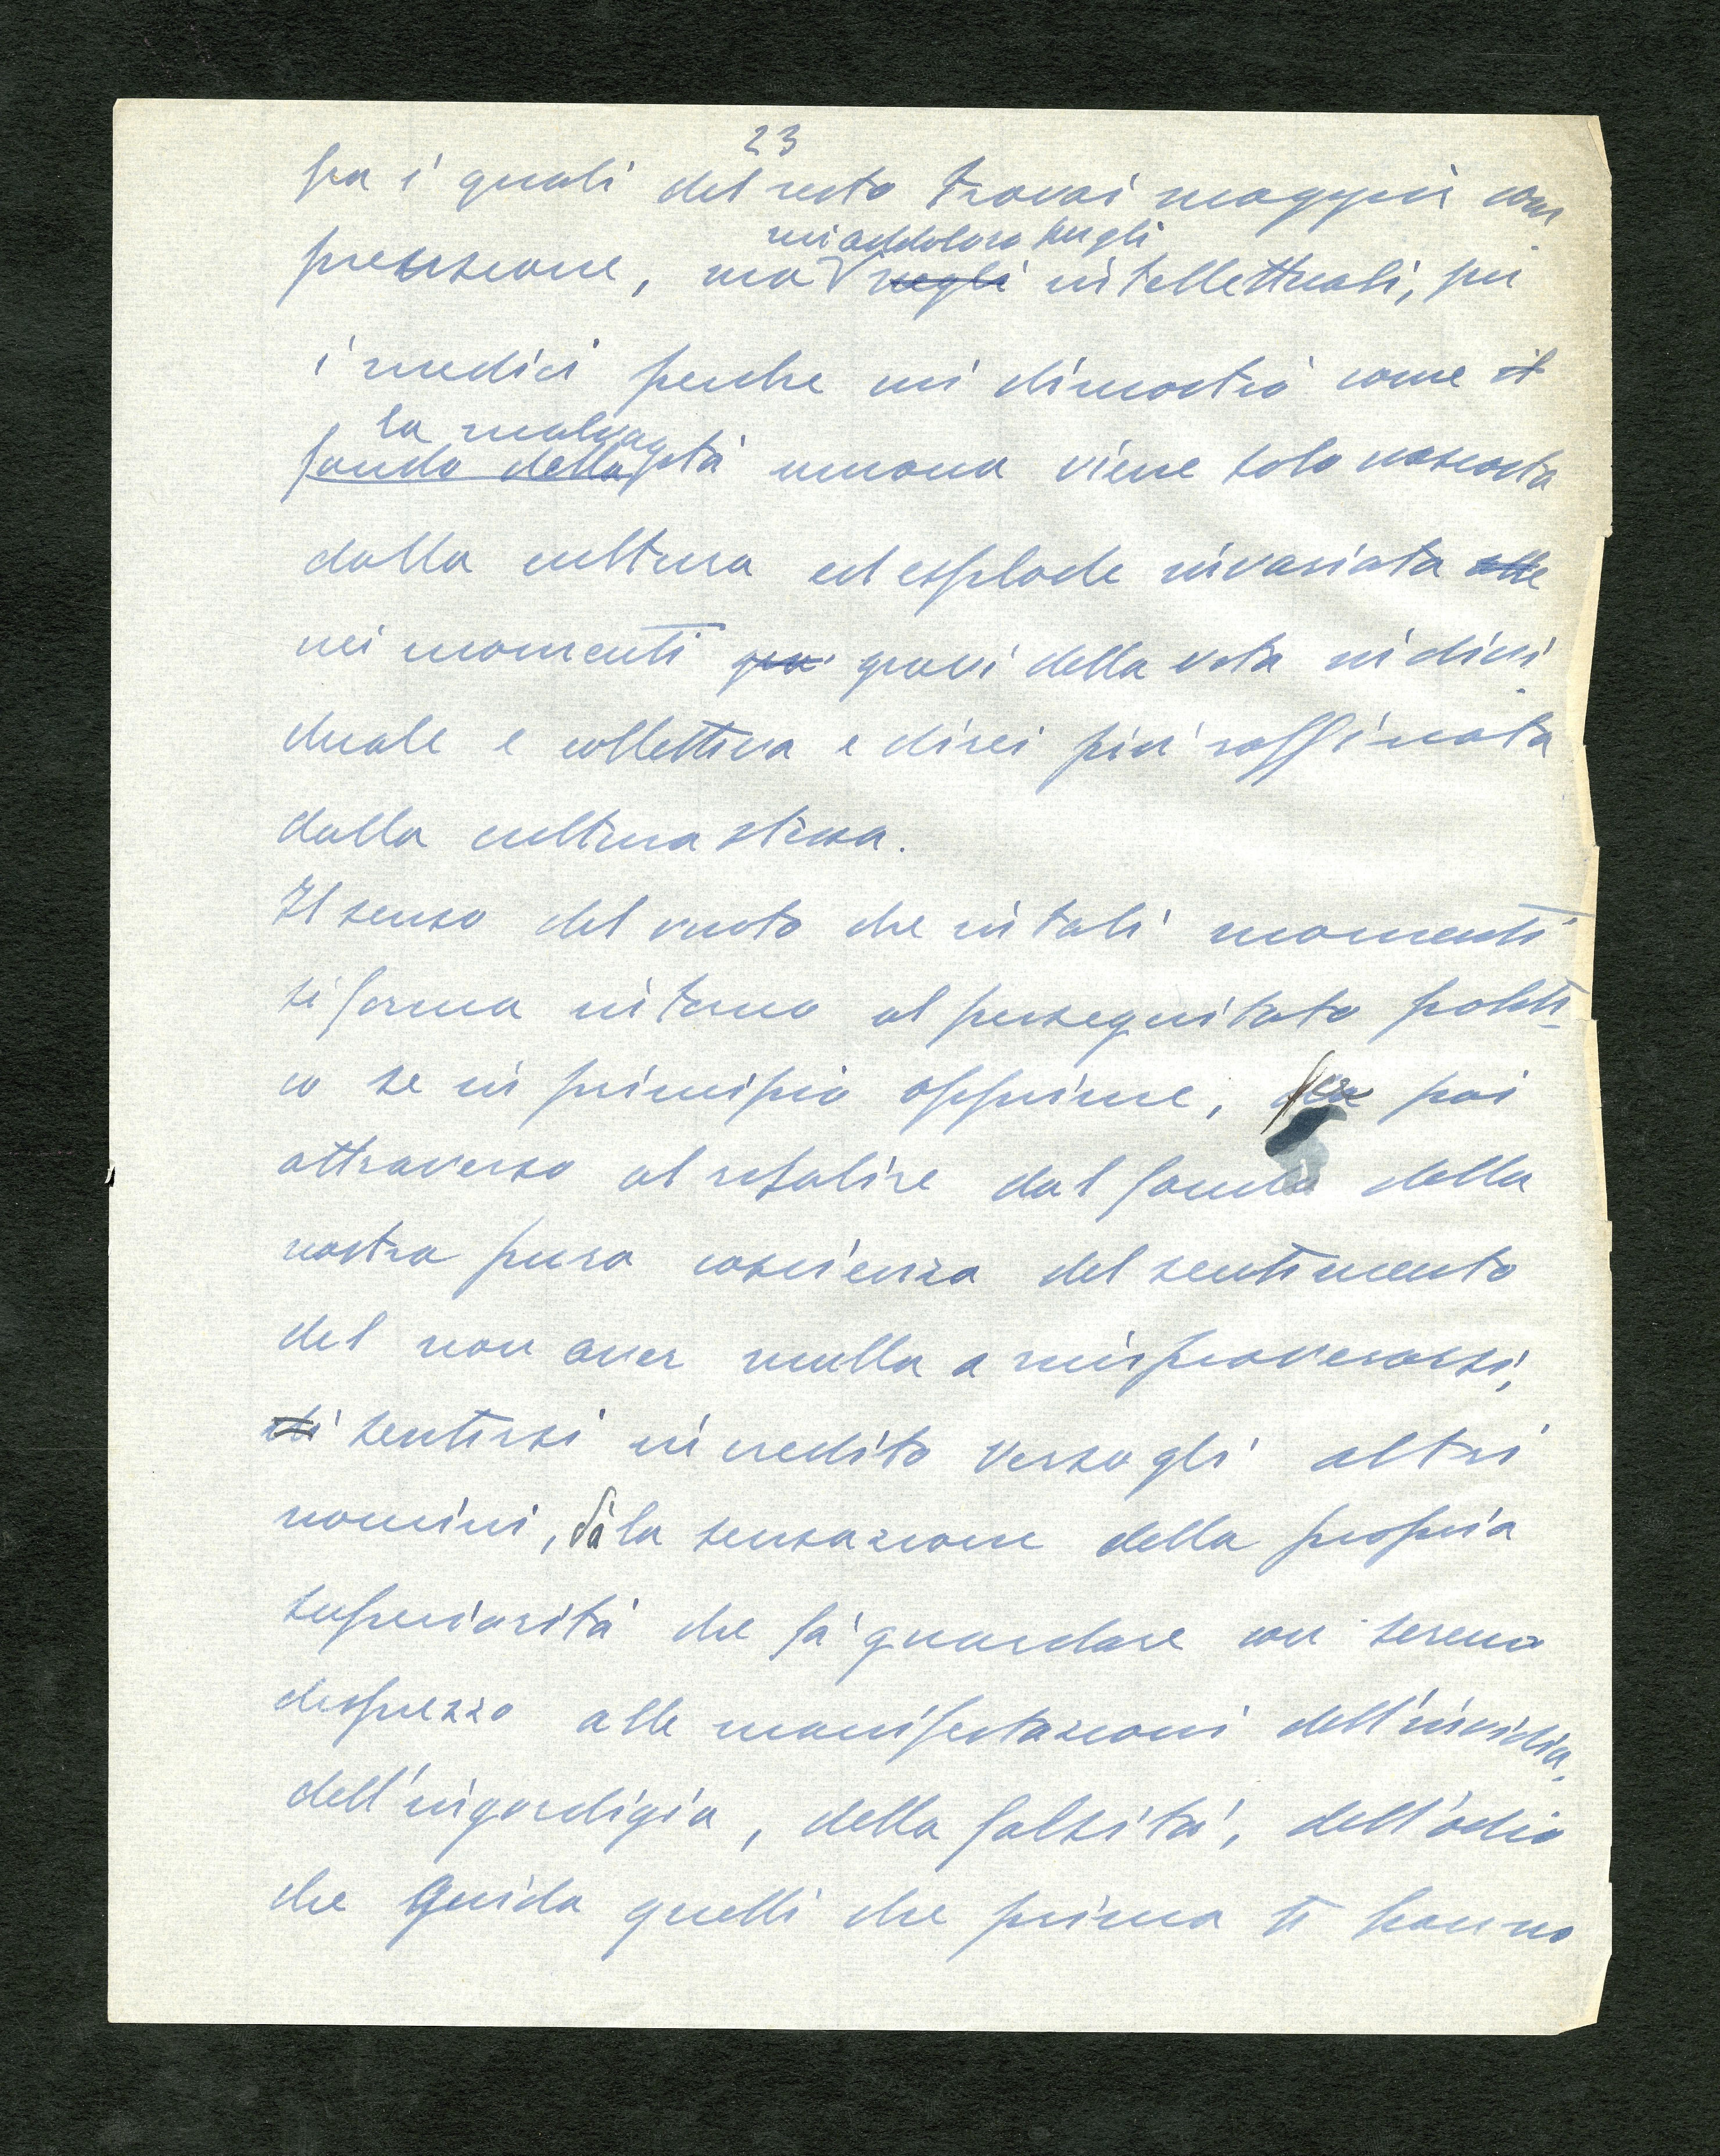 23
fra i quali del resto trovai maggior com
prensione, ma negli intellettuali, per
mi addoloro sugli
i medici perche mi dimostrò come il
la malvag
fondo della ità umana viene solo nascosta
dalla cultura ed esplode invariata alle
nei momenti gra gravi della vita indivi
duale e collettiva e direi più raffinata
dalla cultura stessa.
Il senso del vuoto che in tali momenti
si forma intorno al perseguitato politi-
co se in principio opprime, poi
attraverso al risalire dal fondo della
nostra pura coscienza del sentimento
del non aver nulla a rimproverarsi,
di sentirsi in credito verso gli altri
uomini, dà la sensazione della propria
superiorità che fà guardare con sereno
disprezzo alle manifestazioni dell'invidia,
dell'ingordigia, della falsità, dell'odio
che guida quelli che prima ti hanno